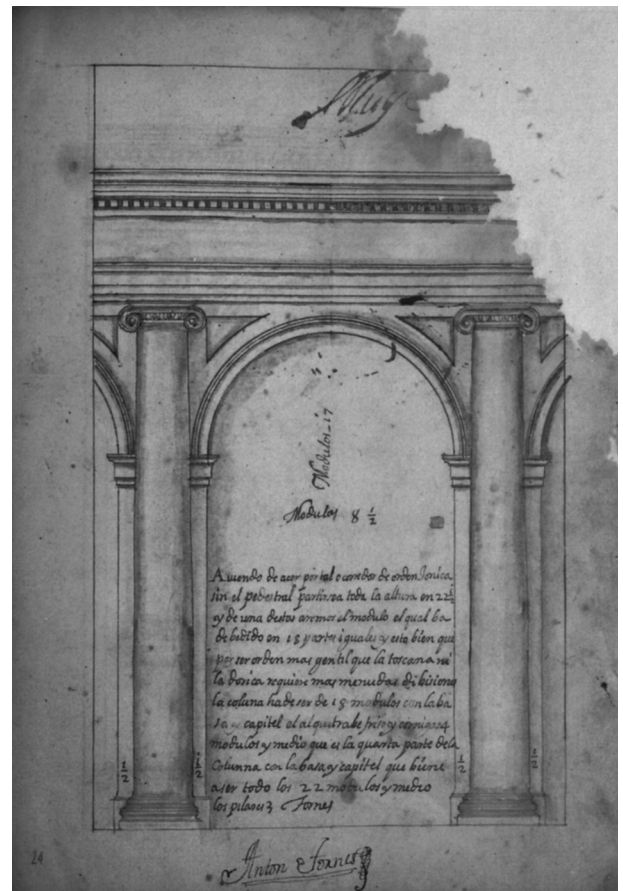 Modulos 17
Modulos 8 1/2
Auiendo de acer portal o corredor de orden Jonica
sin el pedestral partirsea toda la altura en 22 1/2
y de una destas aremos el modulo el qual ba
debidido en 18 partes iguales y esto bien que
por ser orden mas gentil que la toscana ni
la dorica requiere mas menudas dibisiones
la coluna ha de ser de 18 modulos con la ba
sa y capitel el alquitrabe friso y cornisa 4
modulos y medio que es la quarta parte de la
Columna con la basa y capitel que biene
a ser todo los 22 modulos y medio
los pilares 3 Fornes
1/2
1/2
1/2
1/2
24
Anton Fornes